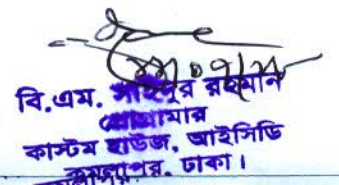 বি.এম. সাইদুর রহমান
প্রোগ্রামার
কাস্টম হাউজ, আইসিডি
কমলাপুর, ঢাকা।